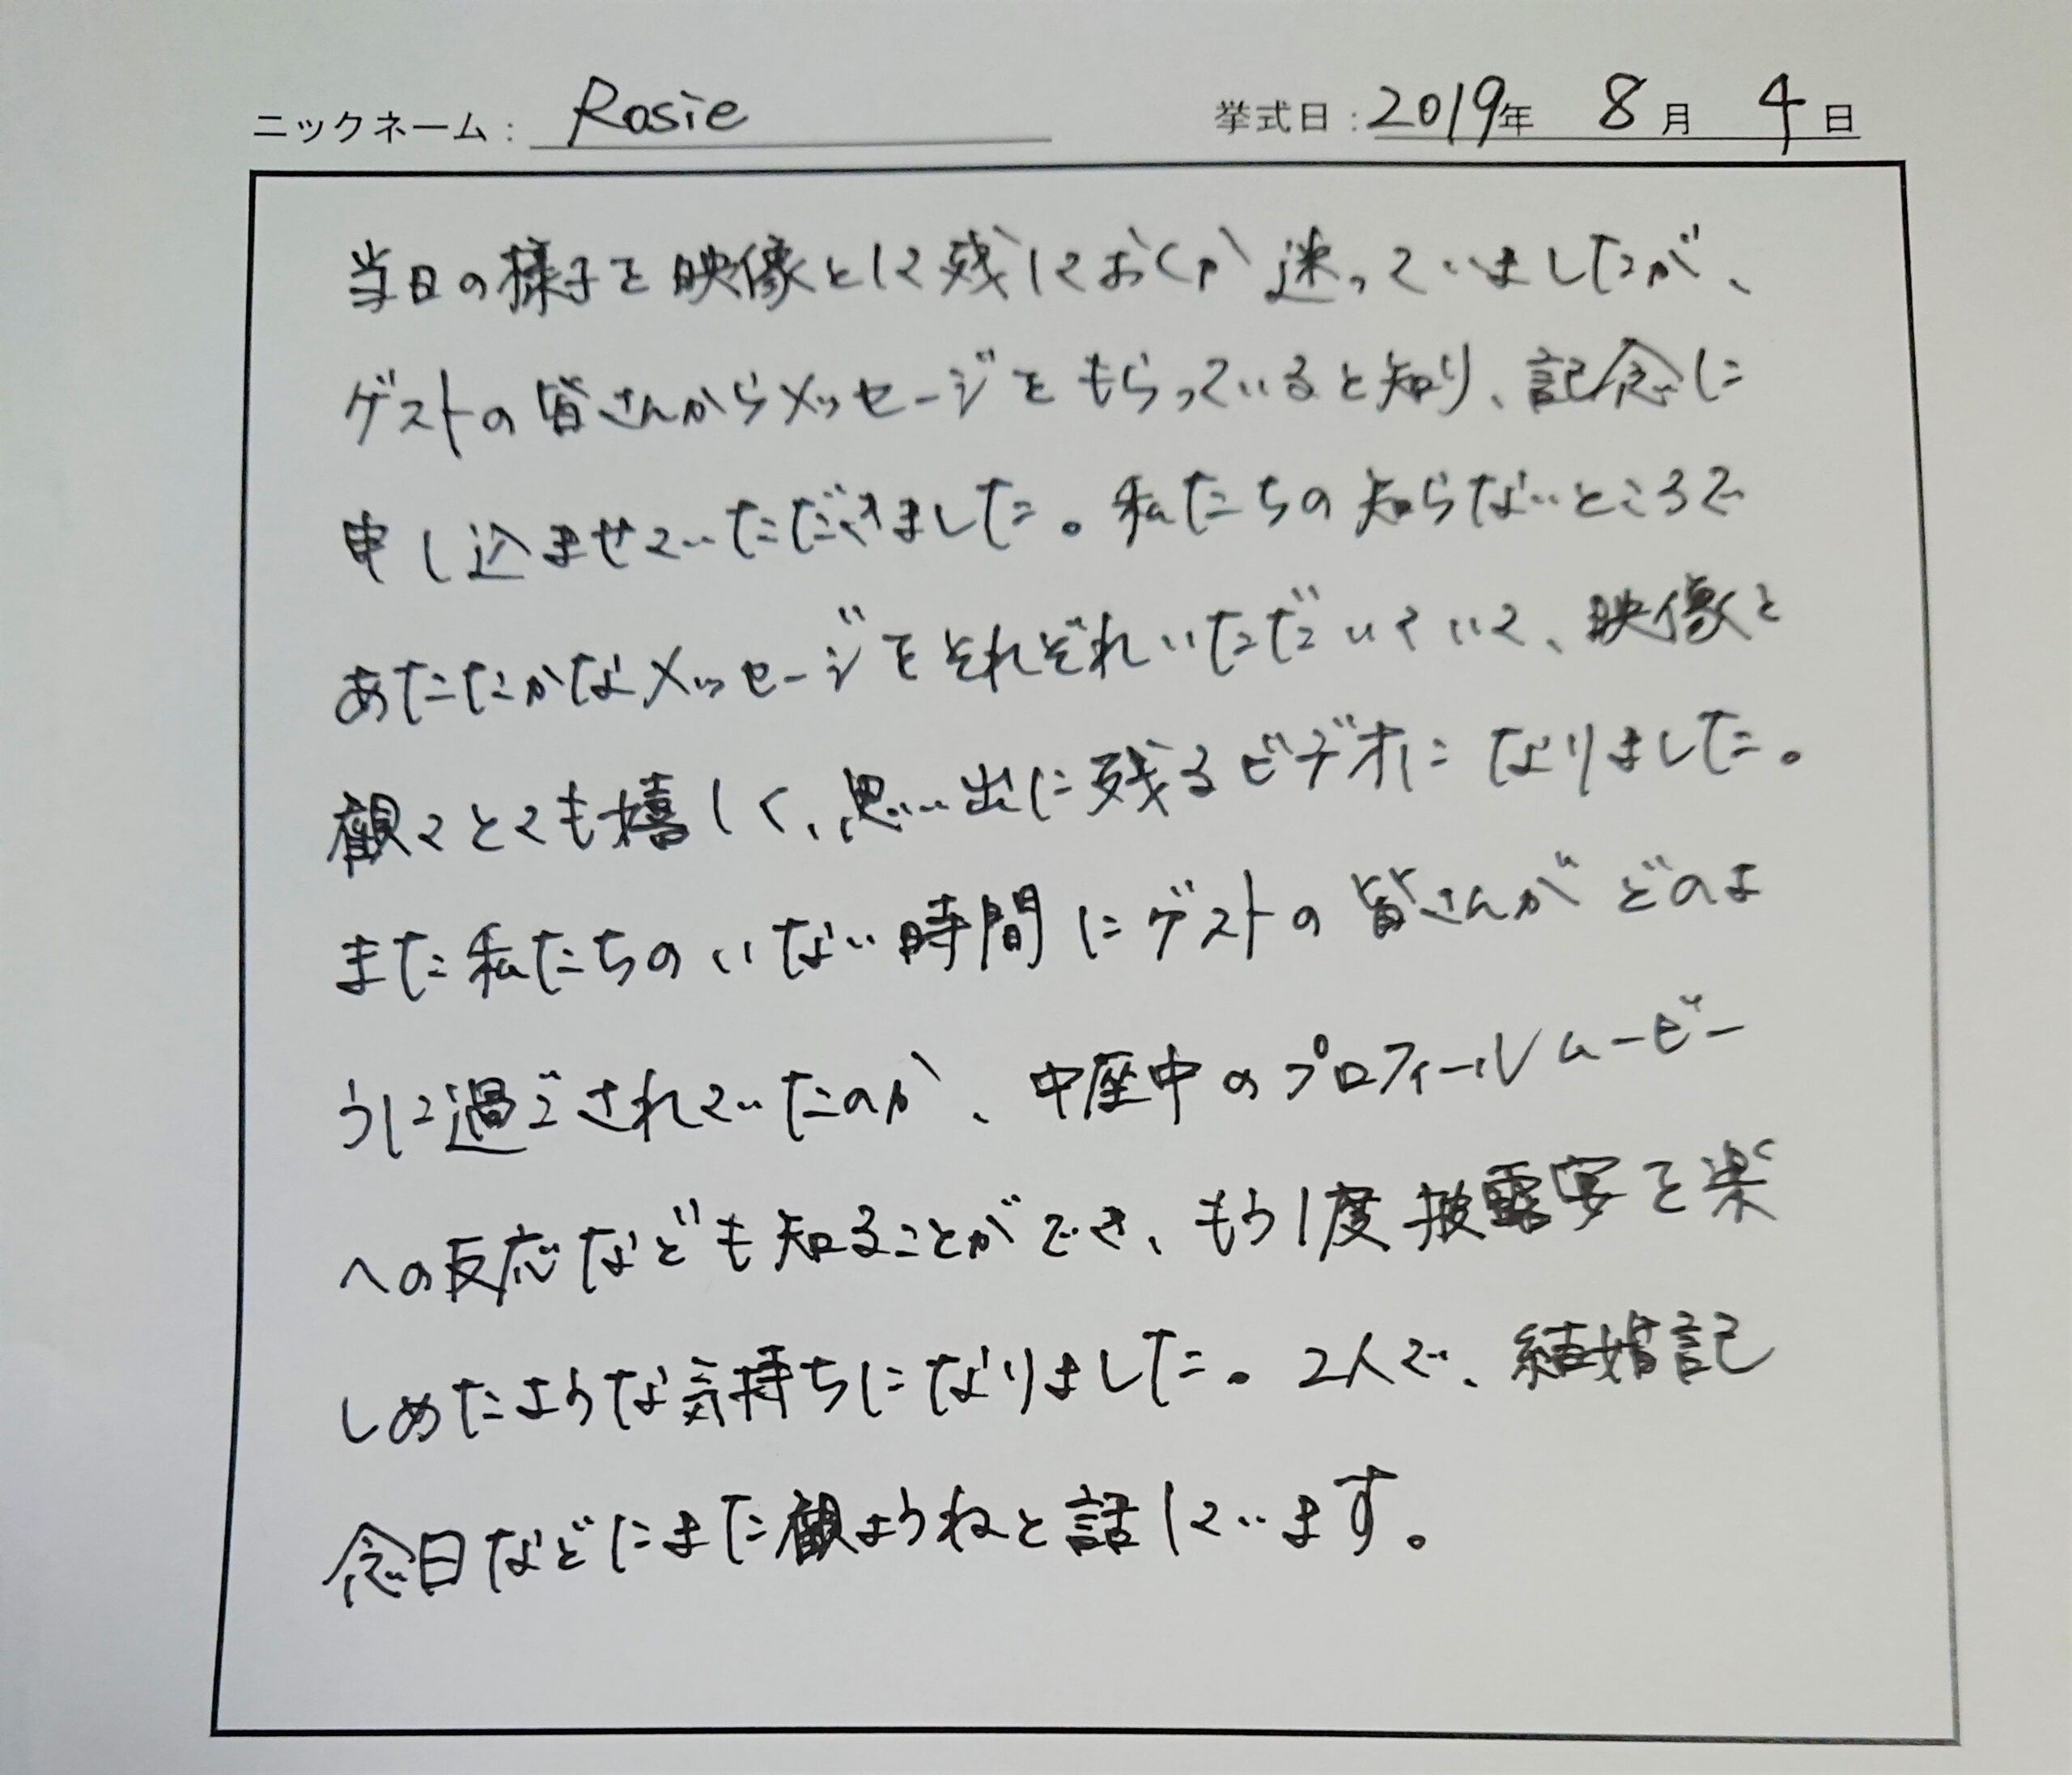 ニックネーム: Rosie 挙式日:2019年 8月 4日
当日の様子を映像として残しておくか迷っていましたが、
ゲストの皆さんからメッセージをもらっていると知り、記念に
申し込ませていただきました。私たちの知らないところで
あたたかなメッセージをそれぞれいただいていて、映像と
観てとても嬉しく、思い出に残るビデオになりました。
また私たちのいない時間にゲストの皆さんがどのよ
うに過ごされていたのか、中座中のプロフィールムービー
への反応なども知ることができ、もう1度披露宴を楽
しめたような気持ちになりました。2人で、結婚記
念日などにまた観ようねと話しています。